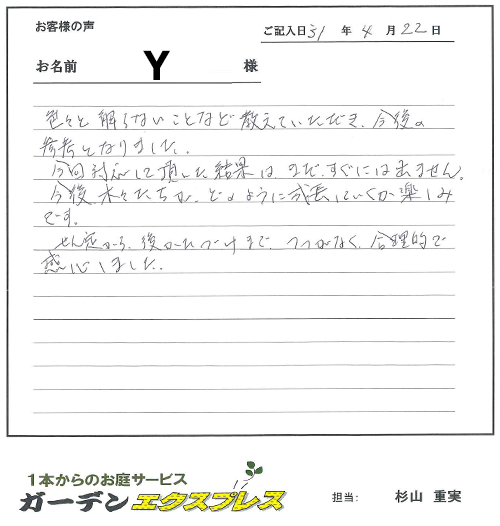 お客様の声
ご記入日 31 年 4 月 22 日
お名前 Y 様
色々と解らないことなど教えていただき、今後の
参考となりました。
今回対応して頂いた結果は、まだすぐには出ません。
今後、木々たちが、どのように成長していくか楽しみ
です。
せん定から、後かたづけまで、つつがなく、合理的で
感心しました。
1本からのお庭サービス
ガーデンエクスプレス
担当: 杉山 重実